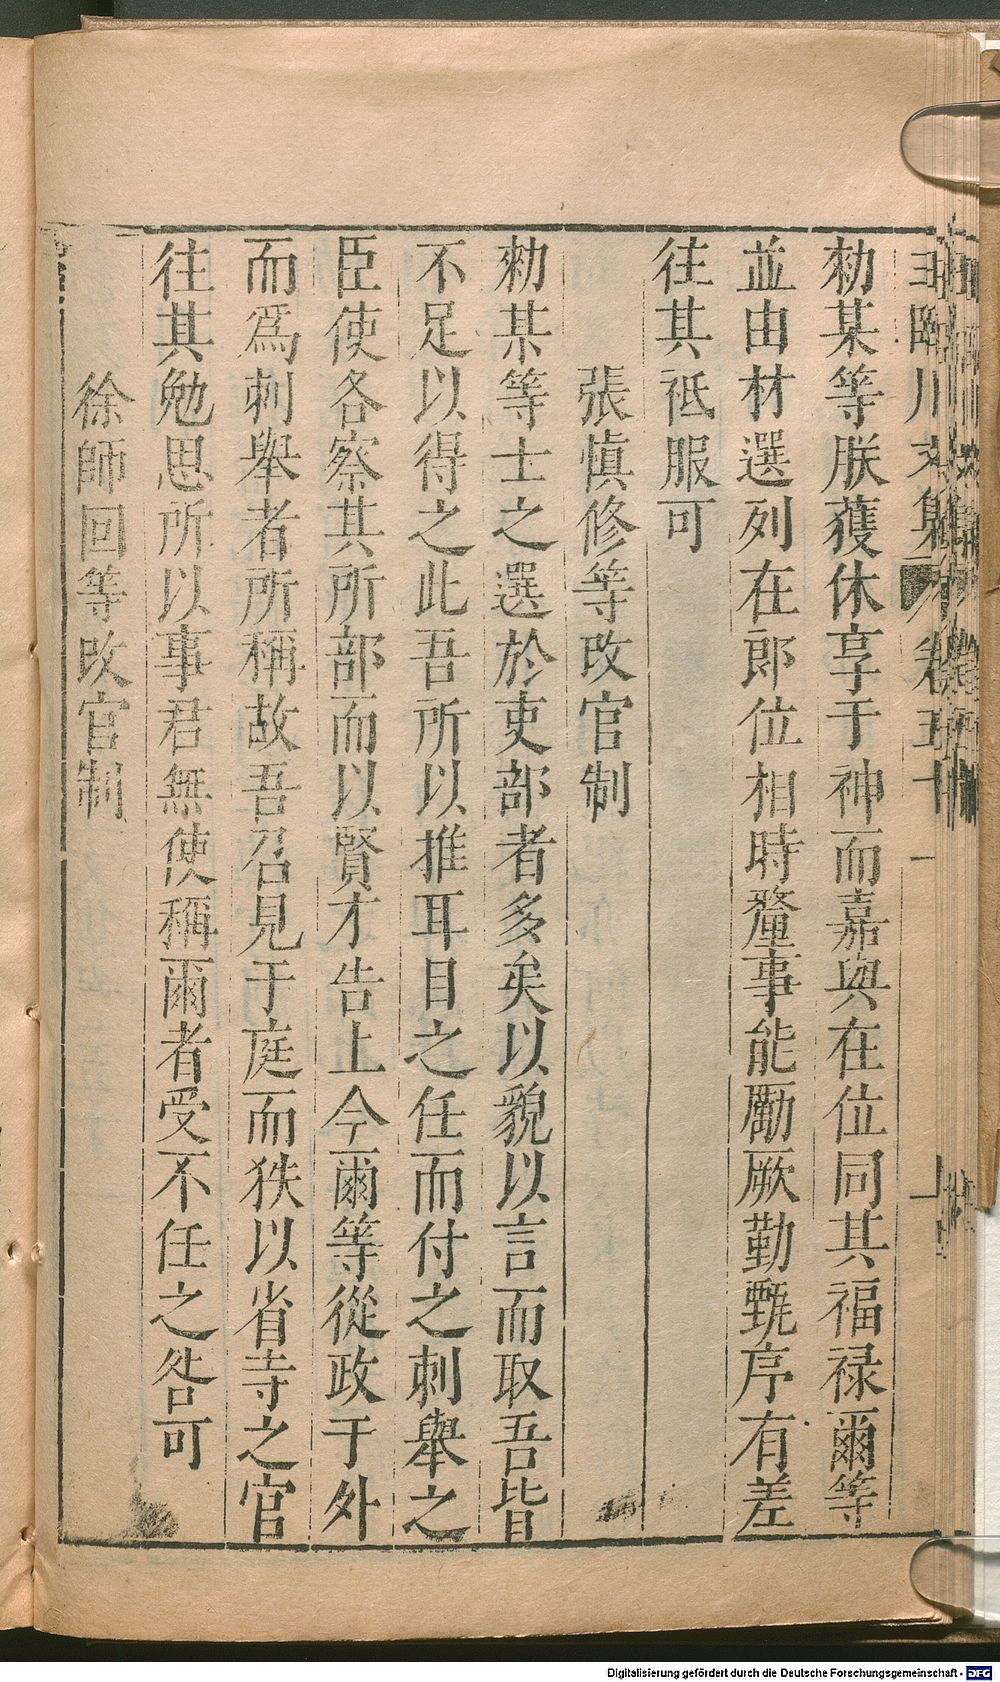 王臨川文集 卷五十一
勑某等朕獲休享于神而嘉與在位同其福禄爾等
並由材選列在郎位相時釐事能勵厥勤甄序有差
往其祗服可
張慎修等改官制
勑某等士之選於吏部者多矣以貌以言而取吾皆
不足以得之此吾所以推耳目之任而付之刺舉之
臣使各察其所部而以賢才告上今爾等從政于外
而爲刺舉者所稱故吾召見于庭而秩以省寺之官
往其勉思所以事君無使稱爾者受不任之咎可
徐師回等改官制
Digitalisierung gefördert durch die Deutsche Forschungsgemeinschaft - DFG